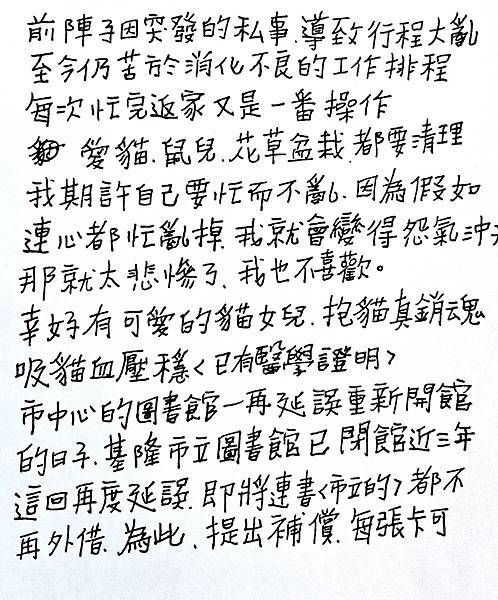 前陣子因突發的私事、導致行程大亂
至今仍苦於消化不良的工作排程
每次忙完返家又是一番操作
愛貓、鼠兒、花草盆栽、都要清理
我期許自己要忙而不亂、因為假如
連心都忙亂掉、我就會變得怨氣沖天
那就太悲慘了、我也不喜歡。
幸好有可愛的貓女兒、抱貓真銷魂
吸貓血壓穩〈已有醫學證明〉
市中心的圖書館一再延誤重新開館
的日子、基隆市立圖書館已閉館近三年
這回再度延誤、即將連書〈市立的〉都不
再外借、為此、提出補償、每張卡可